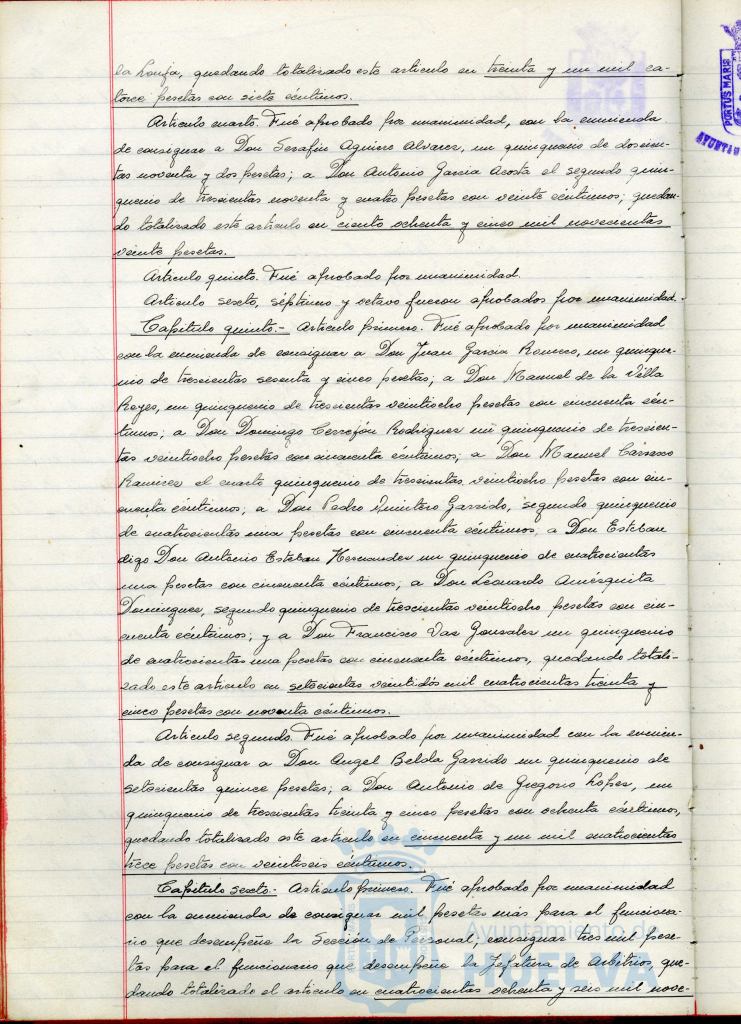 la Lonja, quedando totalizado este articulo en treinta y un mil ca-
torce pesetas con siete céntimos.
Articulo cuarto. Fué aprobado por unanimidad, con la enmienda
de consignar a Don Serafin Aguirre Alvarez, un quinquenio de doscien-
tas noventa y dos pesetas; a Don Antonio Garcia Acosta el segundo quin-
quenio de trescientas noventa y cuatro pesetas con veinte céntimos; quedan-
do totalizado este articulo en ciento ochenta y cinco mil novecientas
veinte pesetas.
Articulo quinto. Fué aprobado por unanimidad.
Articulo sexto, séptimo y octavo fueron aprobados por unanimidad.
Capitulo quinto.- Articulo primero. Fué aprobado por unanimidad
con la enmienda de consignar a Don Juan Garcia Romero, un quinque-
nio de trescientas sesenta y cinco pesetas; a Don Manuel de la Villa
Reyes, un quinquenio de trescientas veintiocho pesetas con cincuenta cén-
timos; a Don Domingo Cerrejón Rodriguez un quinquenio de trescien-
tas veintiocho pesetas con cincuenta céntimos; a Don Manuel Carrasco
Ramirez el cuarto quinquenio de trescientas veintiocho pesetas con cin-
cuenta céntimos; a Don Pedro Quintero Garrido, segundo quinquenio
de cuatrocientas una pesetas con cincuenta céntimos, a Don Esteban
digo Don Antonio Esteban Hernandez un quinquenio de cuatrocientas
una pesetas con cincuenta céntimos; a Don Leonardo Amésquita
Dominguez, segundo quinquenio de trescientas veintiocho pesetas con cin-
cuenta céntimos; y a Don Francisco Vaz Gonzalez un quinquenio
de cuatrocientas una pesetas con cincuenta céntimos, quedando totali-
zado este articulo en setecientas veintidós mil cuatrocientas treinta y
cinco pesetas con noventa céntimos.
Articulo segundo. Fué aprobado por unanimidad con la enmien-
da de consignar a Don Angel Belda Garrido un quinquenio de
setecientas quince pesetas; a Don Antonio de Gregorio Lopez, un
quinquenio de trescientas treinta y cinco pesetas con ochenta céntimos,
quedando totalizado este articulo en cincuenta y un mil cuatrocientas
trece pesetas con veintiseis céntimos.
Capitulo sexto.- Articulo primero. Fué aprobado por unanimidad
con la enmienda de consignar mil pesetas más para el funciona-
rio que desempeñe la Sección de Personal; consignar tres mil pese-
tas para el funcionario que desempeñe la Jefatura de Arbitrios, que-
dando totalizado el articulo en cuatrocientas ochenta y seis mil nove-
Ayuntamiento de
HUELVA
PORTUS MARIS
AYUNTAM